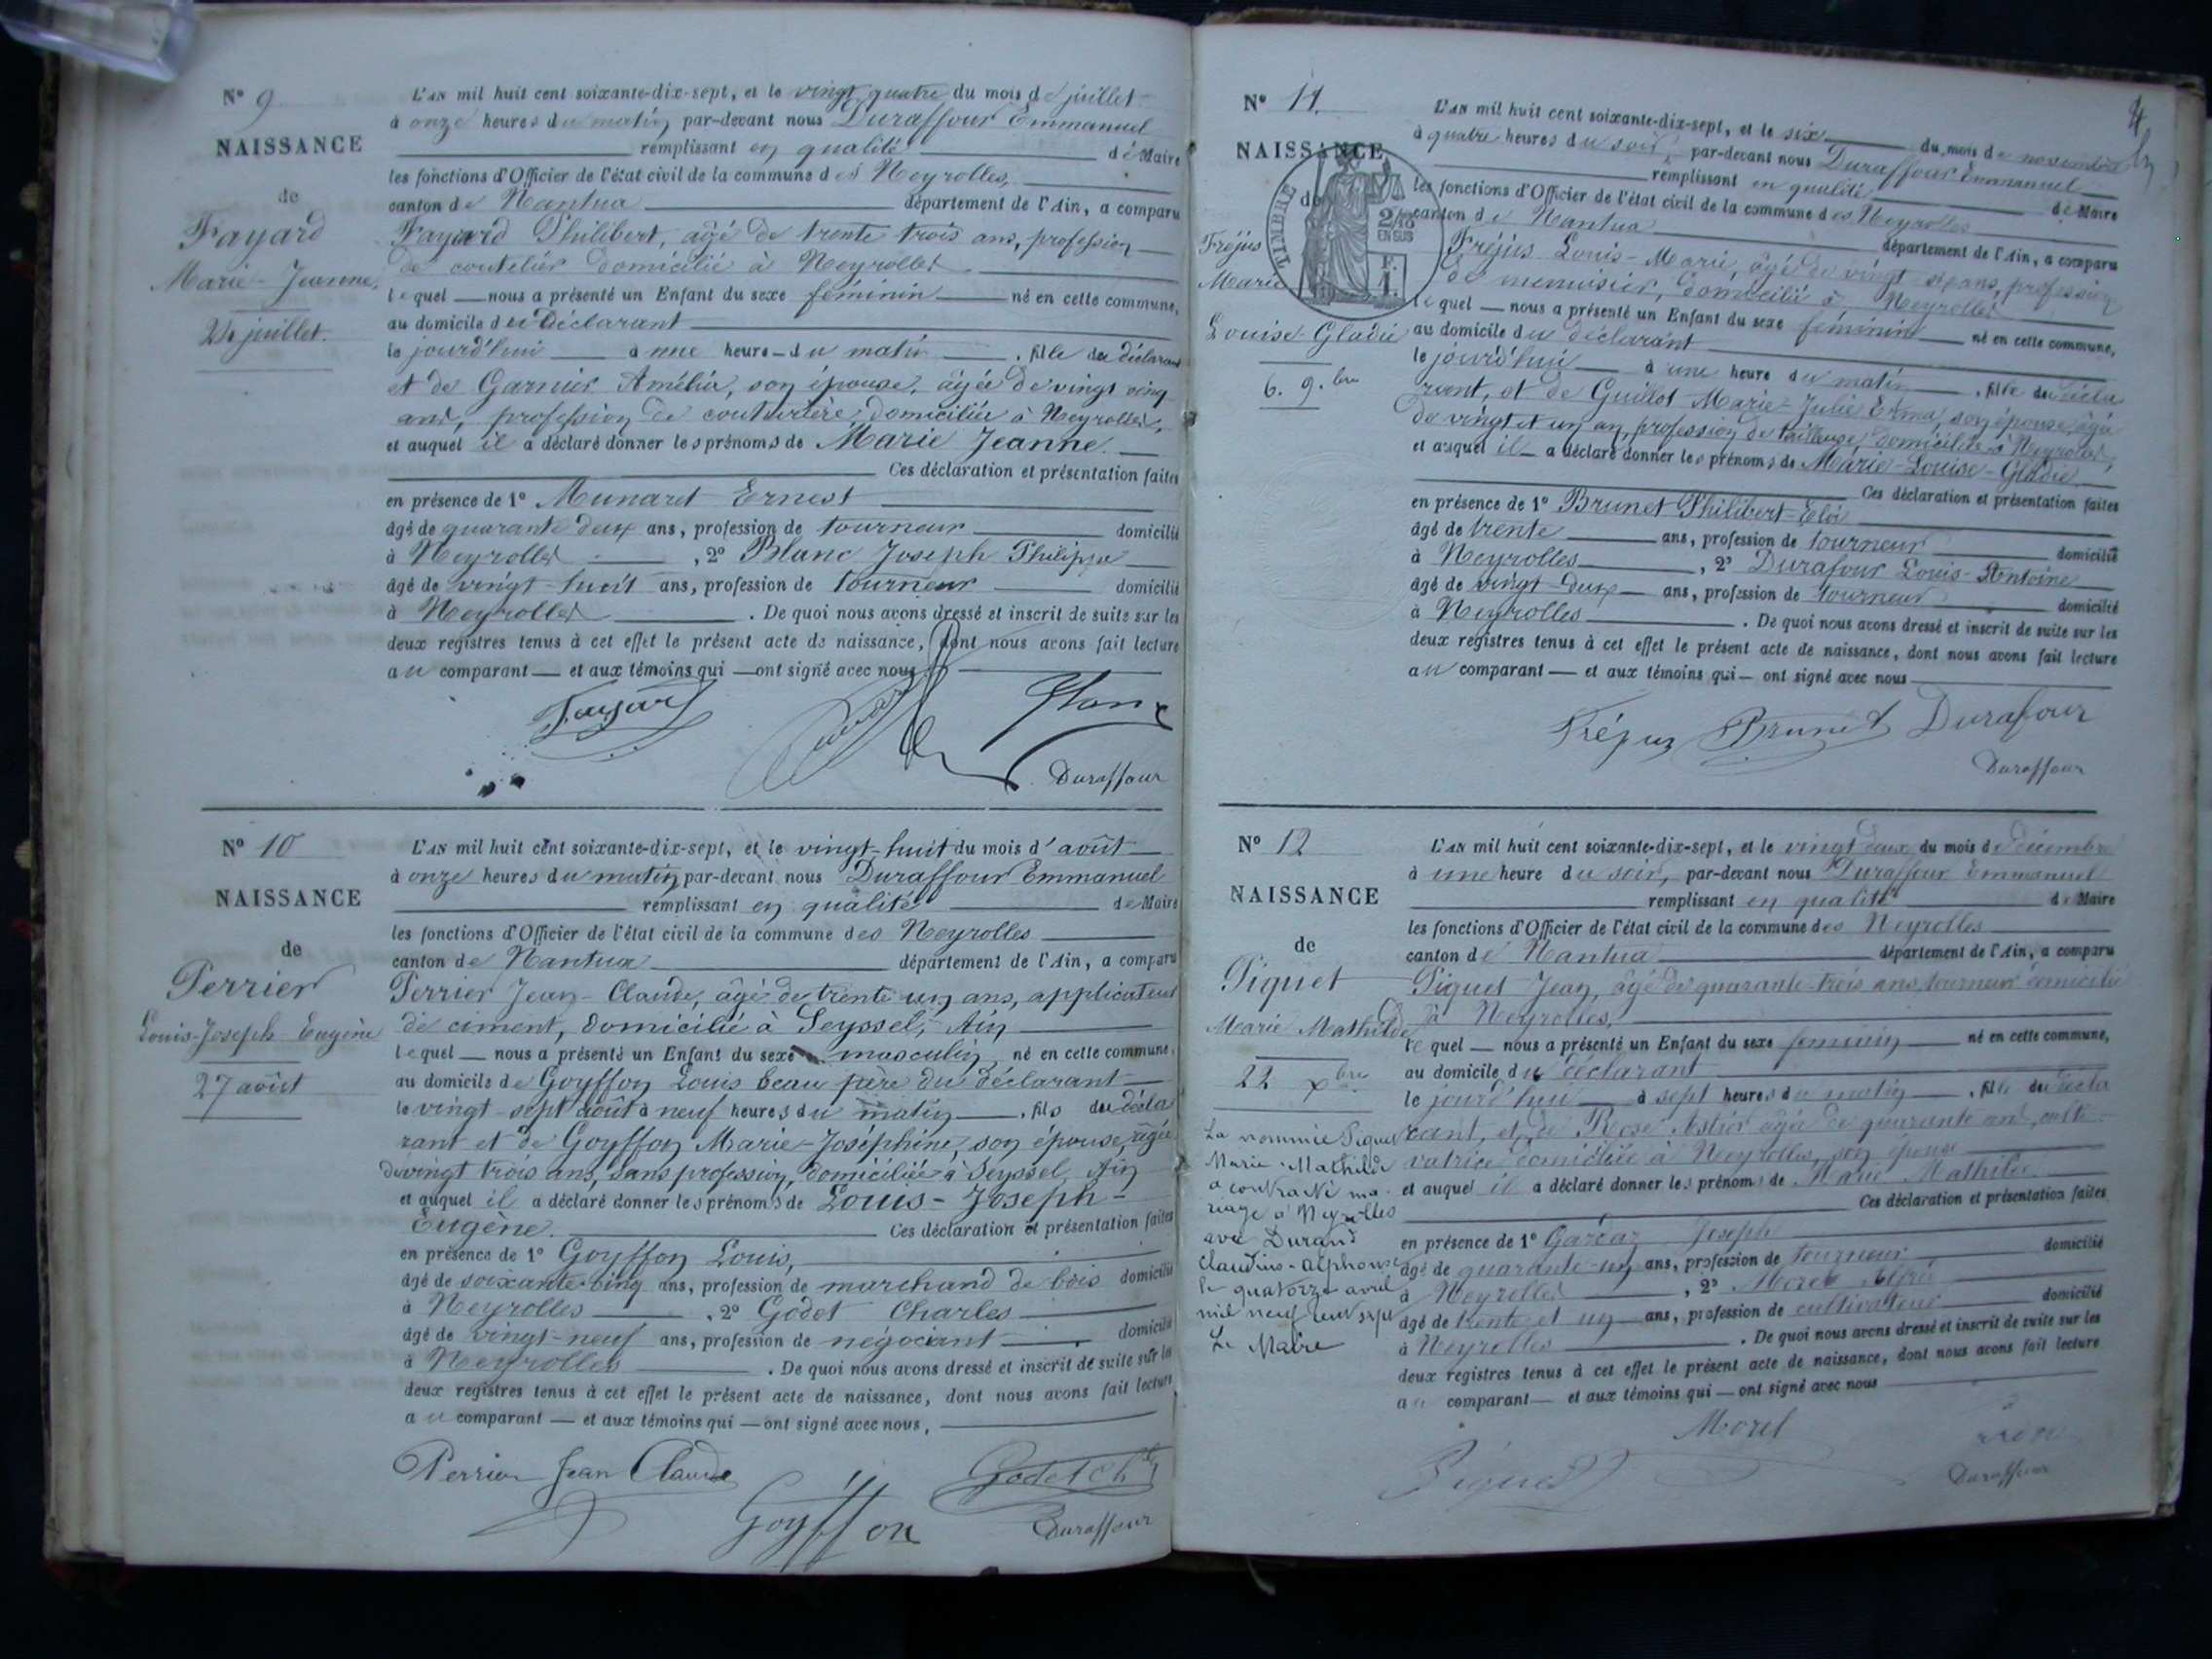 N° 9
NAISSANCE
de
Fayard
Marie-Jeanne,
24 juillet.
L'AN mil huit cent soixante-dix-sept, et le vingt quatre du mois de juillet
à onze heures du matin, par-devant nous Duraffour Emmanuel
remplissant en qualité de Maire
les fonctions d'Officier de l'état civil de la commune des Neyrolles,
canton de Nantua département de l'Ain, a comparu
Fayard Philibert, âgé de trente trois ans, profession
de coutelier domicilié à Neyrolles
lequel nous a présenté un Enfant du sexe féminin né en cette commune,
au domicile du déclarant
le jourd'hui à une heure du matin, fille du déclarant
et de Garnier Amélia, son épouse, âgée de vingt cinq
ans, profession de couturière, domiciliée à Neyrolles,
et auquel il a déclaré donner les prénoms de Marie Jeanne.
Ces déclaration et présentation faites
en présence de 1° Munaret Ernest
âgé de quarante deux ans, profession de tourneur domicilié
à Neyrolles, 2° Blanc Joseph Philippe
âgé de vingt-huit ans, profession de tourneur domicilié
à Neyrolles. De quoi nous avons dressé et inscrit de suite sur les
deux registres tenus à cet effet le présent acte de naissance, dont nous avons fait lecture
au comparant et aux témoins qui ont signé avec nous
Fayard
Blanc
Duraffour
N° 10
NAISSANCE
de
Perrier
Louis-Joseph Eugène
27 août
L'AN mil huit cent soixante-dix-sept, et le vingt-huit du mois d'août
à onze heures du matin par-devant nous Duraffour Emmanuel
remplissant en qualité de Maire
les fonctions d'Officier de l'état civil de la commune des Neyrolles
canton de Nantua département de l'Ain, a comparu
Perrier Jean-Claude, âgé de trente un ans, applicateur
de ciment, domicilié à Seyssel, Ain
lequel nous a présenté un Enfant du sexe masculin né en cette commune,
au domicile de Goyffon Louis beau père du déclarant
le vingt-sept août à neuf heures du matin, fils du décla
rant et de Goyffon Marie-Joséphine, son épouse, âgée
de vingt trois ans, sans profession, domiciliée à Seyssel, Ain
et auquel il a déclaré donner les prénoms de Louis-Joseph-
Eugène. Ces déclaration et présentation faites
en présence de 1° Goyffon Louis,
âgé de soixante-cinq ans, profession de marchand de bois domicilié
à Neyrolles, 2° Godet Charles
âgé de vingt-neuf ans, profession de négociant domicilié
à Neyrolles. De quoi nous avons dressé et inscrit de suite sur les
deux registres tenus à cet effet le présent acte de naissance, dont nous avons fait lecture
au comparant et aux témoins qui ont signé avec nous,
Perrier Jean Claude
Godet Ch
Goyffon
Duraffour
4
N° 11.
NAISSANCE
de
TIMBRE
2/10
EN SUS
F.
1.
Fréjus
Marie
Louise-Gladie
6. 9.bre
L'AN mil huit cent soixante-dix-sept, et le six du mois de novembre
à quatre heures du soir, par-devant nous Duraffour Emmanuel
remplissant en qualité de Maire
les fonctions d'Officier de l'état civil de la commune des Neyrolles
canton de Nantua département de l'Ain, a comparu
Fréjus Louis-Marie, âgé de vingt-six ans, profession
de menuisier, domicilié à Neyrolles
lequel nous a présenté un Enfant du sexe féminin né en cette commune,
au domicile du déclarant
le jourd'hui à une heure du matin, fille du décla
rant, et de Guillot Marie-Julie Erma, son épouse, âgée
de vingt et un an, profession de tailleuse, domiciliée à Neyrolles,
et auquel il a déclaré donner les prénoms de Marie-Louise-Gladie
Ces déclaration et présentation faites
en présence de 1° Brunet Philibert-Eloi
âgé de trente ans, profession de tourneur domicilié
à Neyrolles, 2° Durafour Louis-Antoine
âgé de vingt-deux ans, profession de tourneur domicilié
à Neyrolles. De quoi nous avons dressé et inscrit de suite sur les
deux registres tenus à cet effet le présent acte de naissance, dont nous avons fait lecture
au comparant et aux témoins qui ont signé avec nous
Fréjus Brunet Durafour
Duraffour
N° 12
NAISSANCE
de
Piquet
Marie Mathilde
22 Xbre
La nommée Piquet
Marie-Mathilde
a contracté ma-
riage à Neyrolles
avec Durand
Claudius-Alphonse
le quatorze avril
mil neuf cent sept
Le Maire
L'AN mil huit cent soixante-dix-sept, et le vingt deux du mois de décembre
à une heure du soir, par-devant nous Duraffour Emmanuel
remplissant en qualité de Maire
les fonctions d'Officier de l'état civil de la commune des Neyrolles
canton de Nantua département de l'Ain, a comparu
Piquet Jean, âgé de quarante-trois ans, tourneur domicilié
à Neyrolles,
lequel nous a présenté un Enfant du sexe féminin né en cette commune,
au domicile du déclarant
le jourd'hui à sept heures du matin, fille du décla
rant, et de Rose Astier âgée de quarante ans, culti-
vatrice domiciliée à Neyrolles, son épouse
et auquel il a déclaré donner les prénoms de Marie Mathilde
Ces déclaration et présentation faites
en présence de 1° Joseph
âgé de quarante-un ans, profession de tourneur domicilié
à Neyrolles, 2° Morel Alfred
âgé de trente et un ans, profession de cultivateur domicilié
à Neyrolles. De quoi nous avons dressé et inscrit de suite sur les
deux registres tenus à cet effet le présent acte de naissance, dont nous avons fait lecture
au comparant et aux témoins qui ont signé avec nous
Morel
Piquet
Duraffour